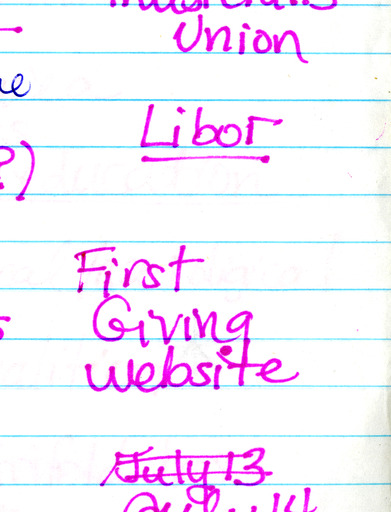 Union
Libor
?)
First
Giving
website
July 13
July 14